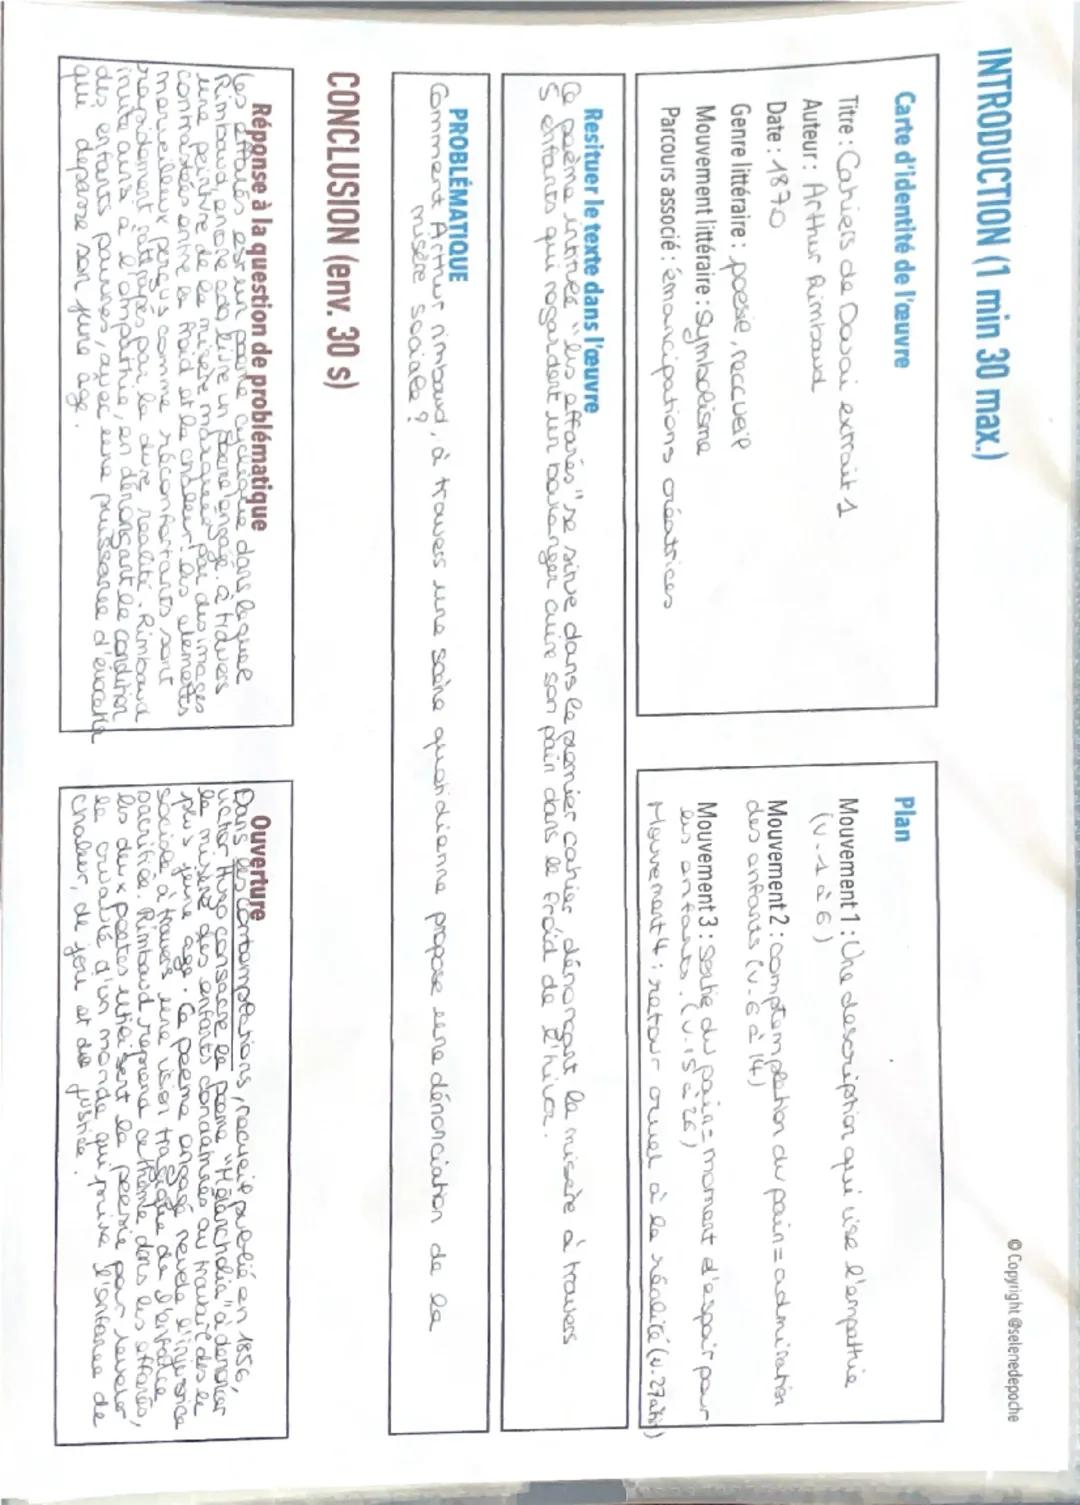 INTRODUCTION (1 min 30 max.)
© Copyright @selenedepoche
Carte d'identité de l'œuvre
Titre : Cahiers de Douai extrait 1
Auteur : Arthur Rimbaud
Date : 1870
Genre littéraire : poésie, reccueil
Mouvement littéraire : Symbolisme
Parcours associé : émancipations créatrices
Plan
Mouvement 1 : Une description qui vise l'empathie
(v.1 à 6)
Mouvement 2 : comptemplation du pain = admiration
des enfants (v.6 à 14)
Mouvement 3 : sortie du pain = moment d'espoir pour
les enfants. (v.15 à 26)
Mouvement 4 : retour cruel à la réalité (v.27 à)
Resituer le texte dans l'œuvre
Ce poème intitulé "les effarés" se situe dans le premier cahier dénonçant la misère à travers
5 enfants qui regardent un boulanger cuire son pain dans le froid de l'hiver.
PROBLÉMATIQUE
Comment Arthur rimbaud, à travers une scène quotidienne propose une dénonciation de la
misère sociale ?
CONCLUSION (env. 30 s)
Réponse à la question de problématique
Les effarés est un poème cyclique dans lequel
Rimbaud, encore ado livre un poème engagé. à travers
une peinture de la misère marquée par des images
contrastées entre le froid et la chaleur. les elements
merveilleux perçus comme réconfortants sont
rapidement rattrapés par la dure realité. Rimbaud
invite aussi à l'empathie, en dénonçant la condition
des enfants pauvres, avec une puissance d'évocation
que depasse son jeune age.
Ouverture
Dans les contemplations, recueil publié en 1856,
victor Hugo consacre le poème "Melancholia" à denoncer
la misère des enfants condamnés au travail dès le
plus jeune age. Ce poème engagé revele l'injustice
sociale à travers une vision tragique de l'enfance
sacrifice. Rimbaud reprend ce thème dans les effarés,
les deux poetes utilisent la poesie pour reveler
la cruauté d'un monde qui prive l'enfance de
chaleur, de joie et de justice.